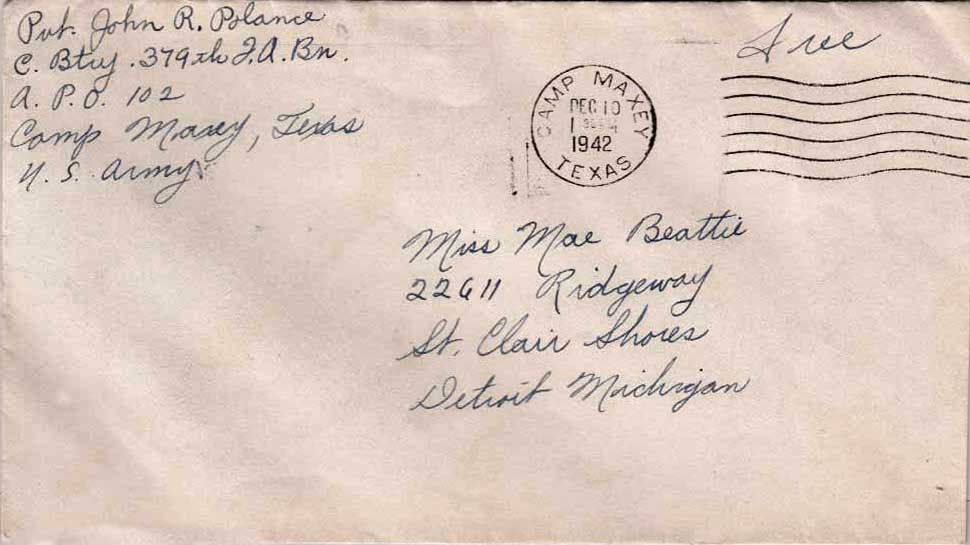 Pvt. John R. Polance
C. Btry. 379th F.A. Bn.
A. P. O. 102
Camp Maxey, Texas
U. S. Army
Free
CAMP MAXEY
DEC 10
1942
TEXAS
Miss Mae Beattie
22611 Ridgeway
St. Clair Shores
Detroit Michigan